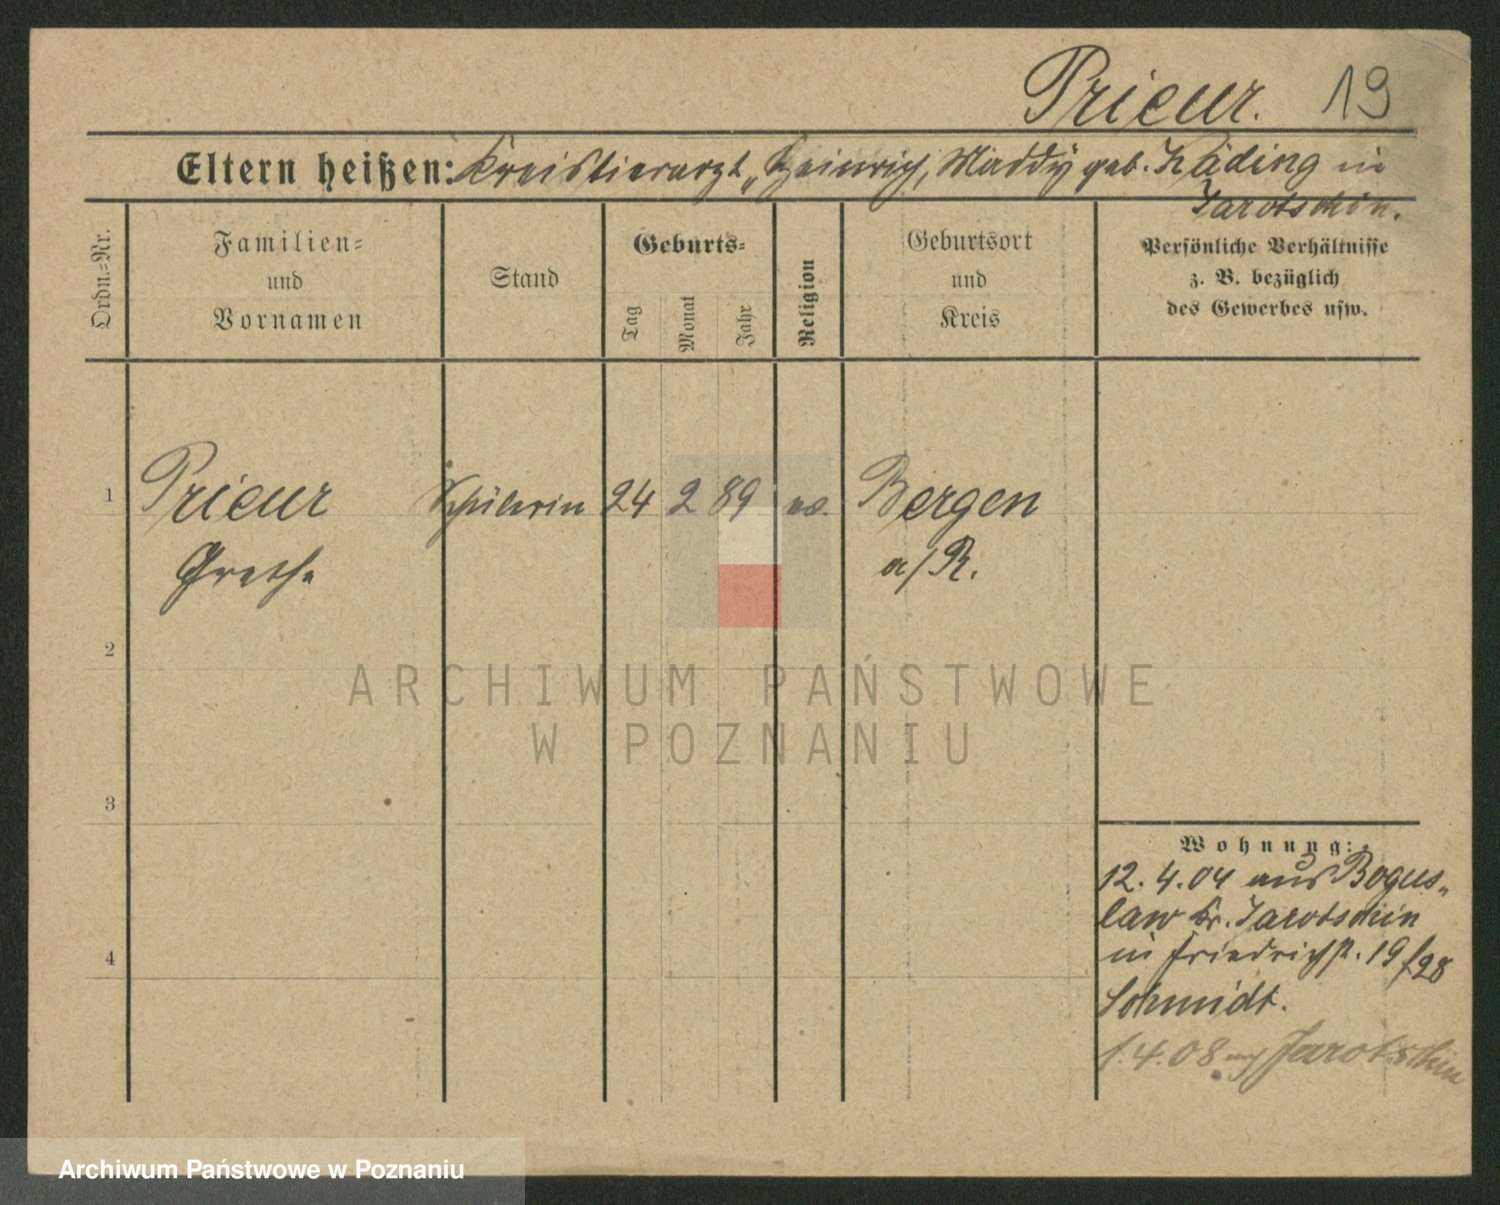 Prieur. 19
Eltern heißen: Kreistierarzt, Heinrich, Maddÿ geb. Käding in
Jarotschin.
Ordn.-Nr.
Familien-
und
Vornamen
Stand
Geburts-
Tag
Monat
Jahr
Religion
Geburtsort
und
Kreis
Persönliche Verhältnisse
z. B. bezüglich
des Gewerbes usw.
1 Prieur Schülerin 24 2 89 ev. Bergen
Grethe a/R.
2
3
4
Wohnung:
12.4.04 aus Bogus-
law Kr. Jarotschin
in Friedrichst. 19/28
Schmidt.
1.4.08 Jarotschin
ARCHIWUM PAŃSTWOWE
W POZNANIU
Archiwum Państwowe w Poznaniu